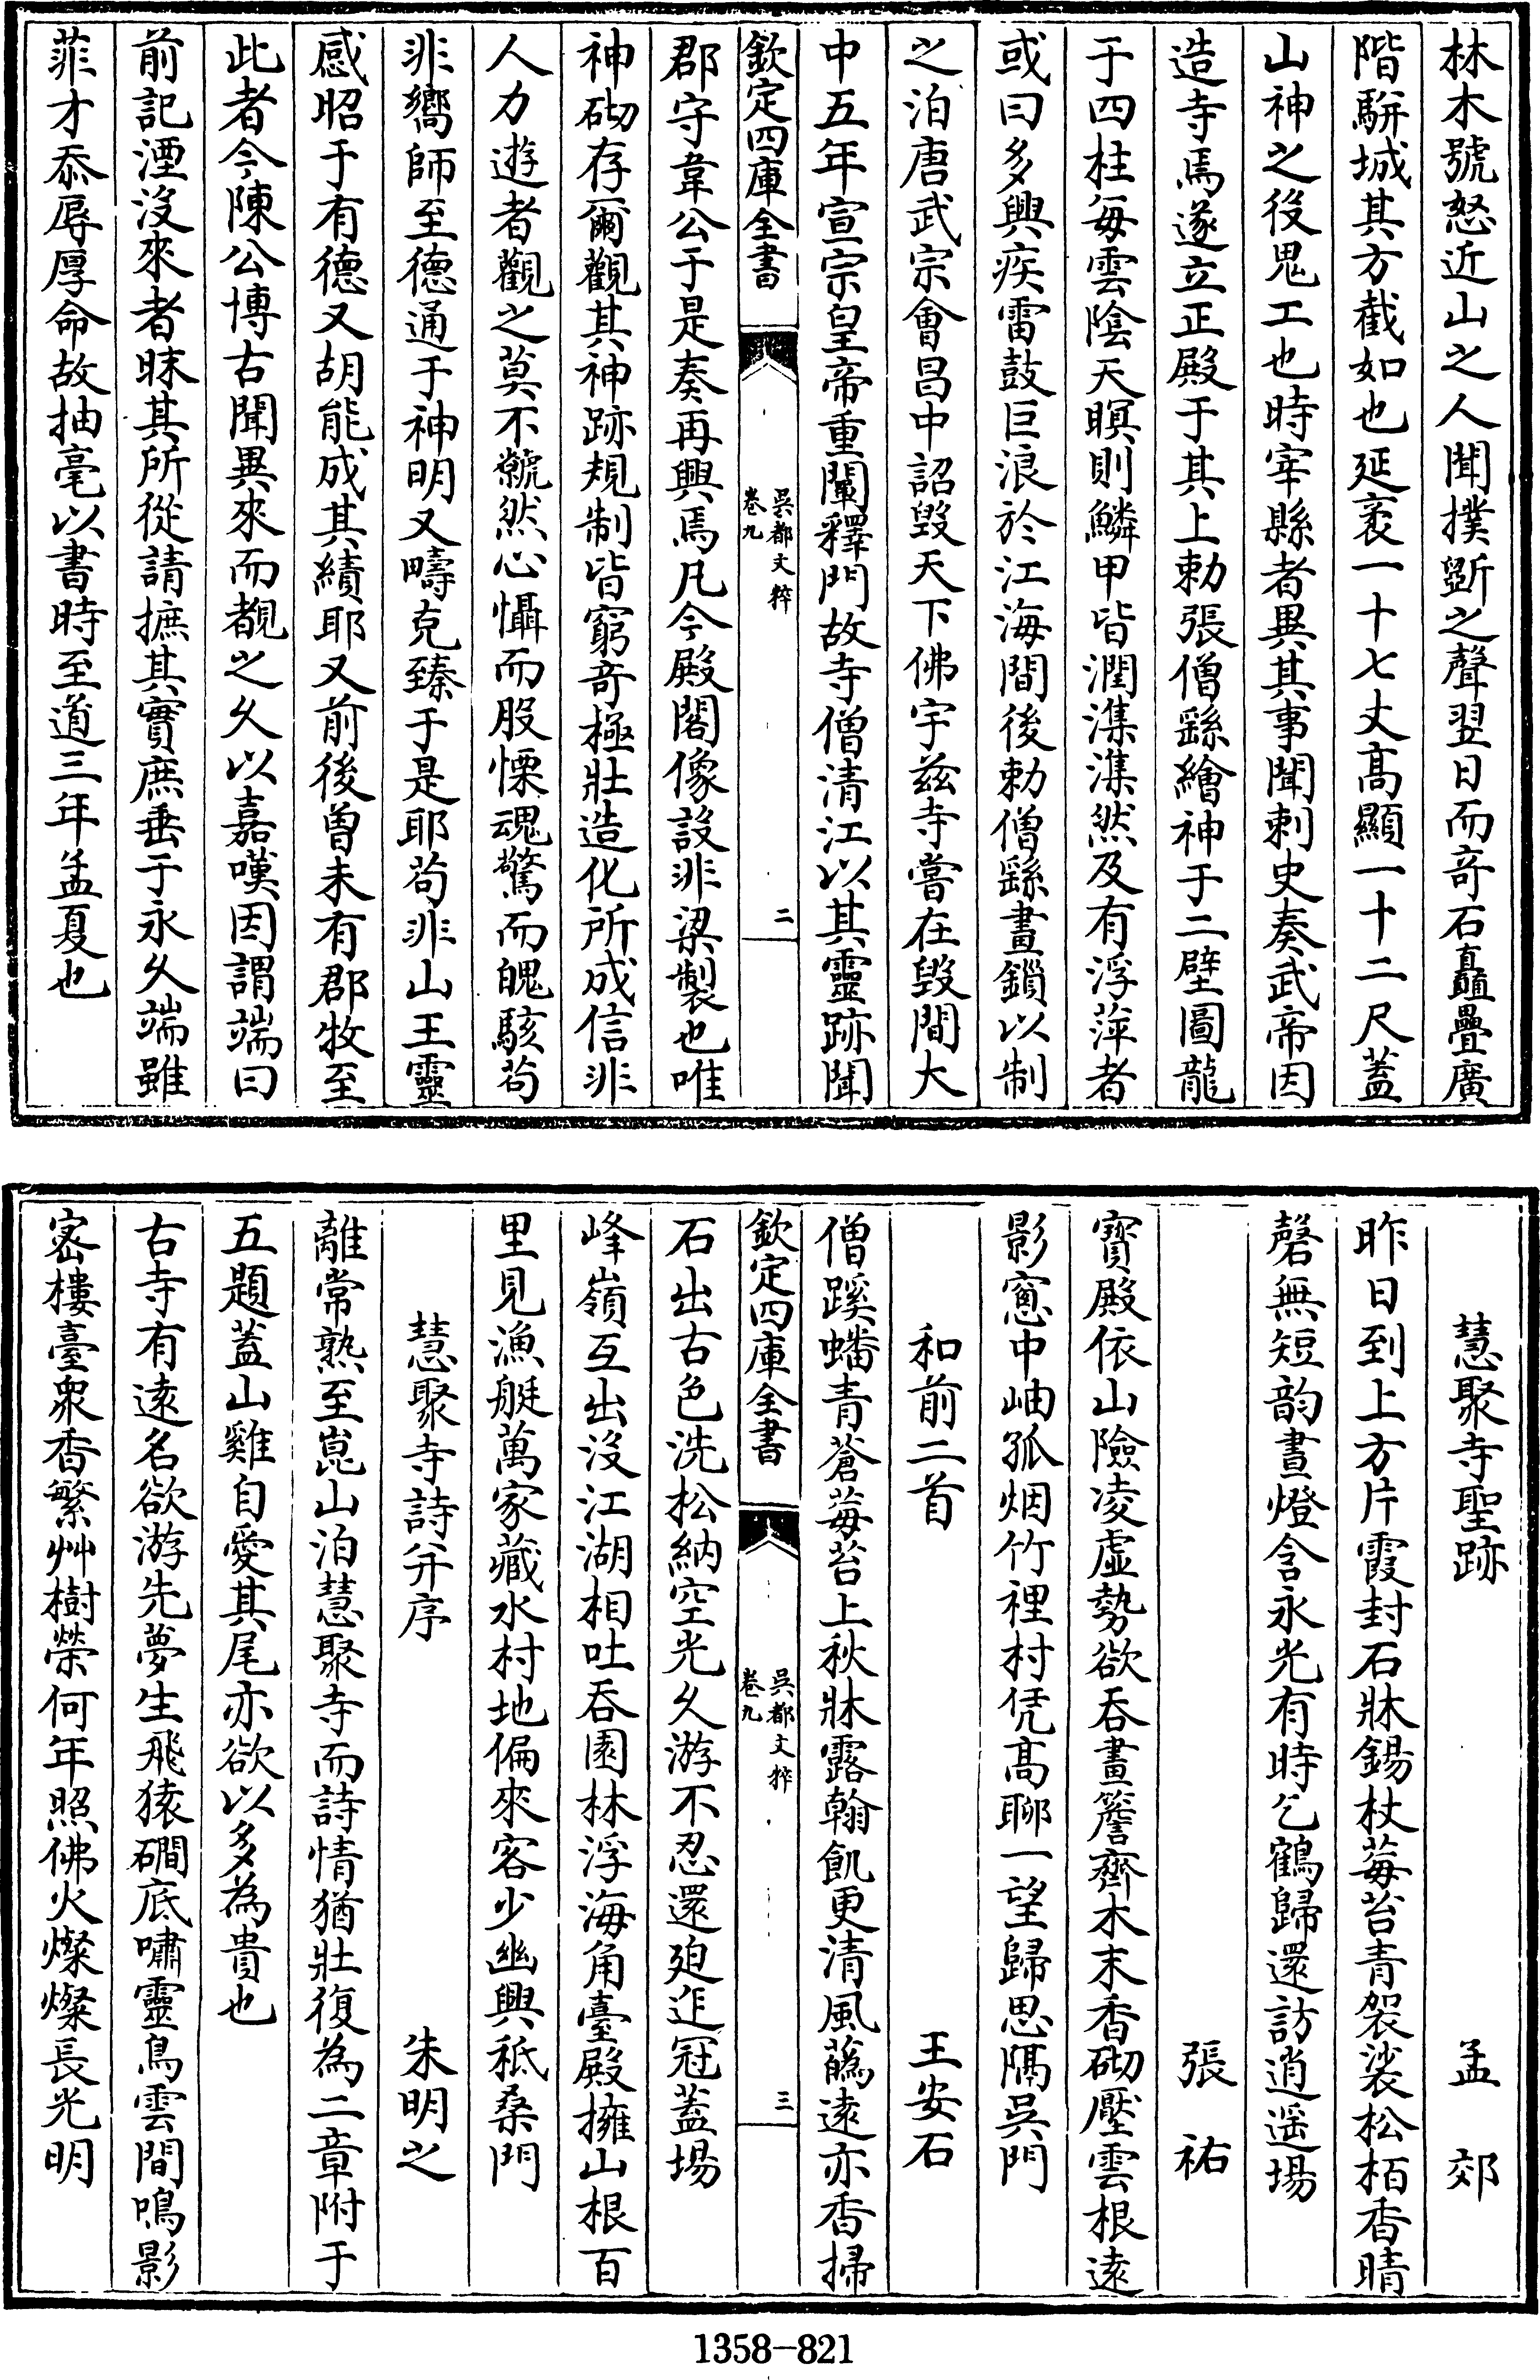 林木號怒近山之人聞撲斲之聲翌日而竒石矗疊廣
階駢城其方截如也延袤一十七丈髙顯一十二尺蓋
山神之役鬼工也時宰縣者異其事聞刺史奏武帝因
造寺焉遂立正殿于其上勅張僧繇繪神于二壁圖龍
于四柱每雲陰天暝則鱗甲皆潤潗潗然及有浮萍者
或曰多興疾雷鼓巨浪於江海間後勅僧繇畫鎖以制
之洎唐武宗會昌中詔毀天下佛宇兹寺嘗在毀間大
中五年宣宗皇帝重闡釋門故寺僧清江以其靈跡聞
欽定四庫全書
吳都文粹
卷九
二
郡守韋公于是奏再興焉凡今殿閣像設非梁製也唯
神砌存爾觀其神跡規制皆窮竒極壯造化所成信非
人力遊者觀之莫不虩然心懾而股慄魂驚而魄駭茍
非嚮師至德通于神明又疇克臻于是耶茍非山王靈
感昭于有德又胡能成其績耶又前後曽未有郡牧至
此者今陳公博古聞異來而覩之乆以嘉嘆因謂端曰
前記湮沒來者昧其所從請摭其實庶垂于永乆端雖
菲才忝辱厚命故抽毫以書時至道三年孟夏也
慧聚寺聖跡 孟郊
昨日到上方片霞封石牀錫杖莓苔青袈裟松栢香晴
磬無短韵晝燈含永光有時乞鶴歸還訪逍遥場
張祐
寳殿依山險凌虛勢欲吞畫簷齊木末香砌壓雲根逺
影窻中岫孤烟竹裡村凭髙聊一望歸思隔吳門
和前二首 王安石
僧蹊蟠青蒼莓苔上秋牀露翰飢更清風蘤逺亦香掃
欽定四庫全書
吳都文粹
卷九
三
石出古色洗松納空光乆游不忍還廹迮冠蓋場
峰嶺互出沒江湖相吐吞園林浮海角臺殿擁山根百
里見漁艇萬家藏水村地偏來客少幽興秪桑門
慧聚寺詩并序 朱明之
離常熟至崑山泊慧聚寺而詩情猶壯復為二章附于
五題蓋山雞自愛其尾亦欲以多為貴也
古寺有逺名欲游先夢生飛猿磵底嘯靈鳥雲間鳴影
宻樓臺衆香繁艸樹榮何年照佛火燦燦長光明
1358-821